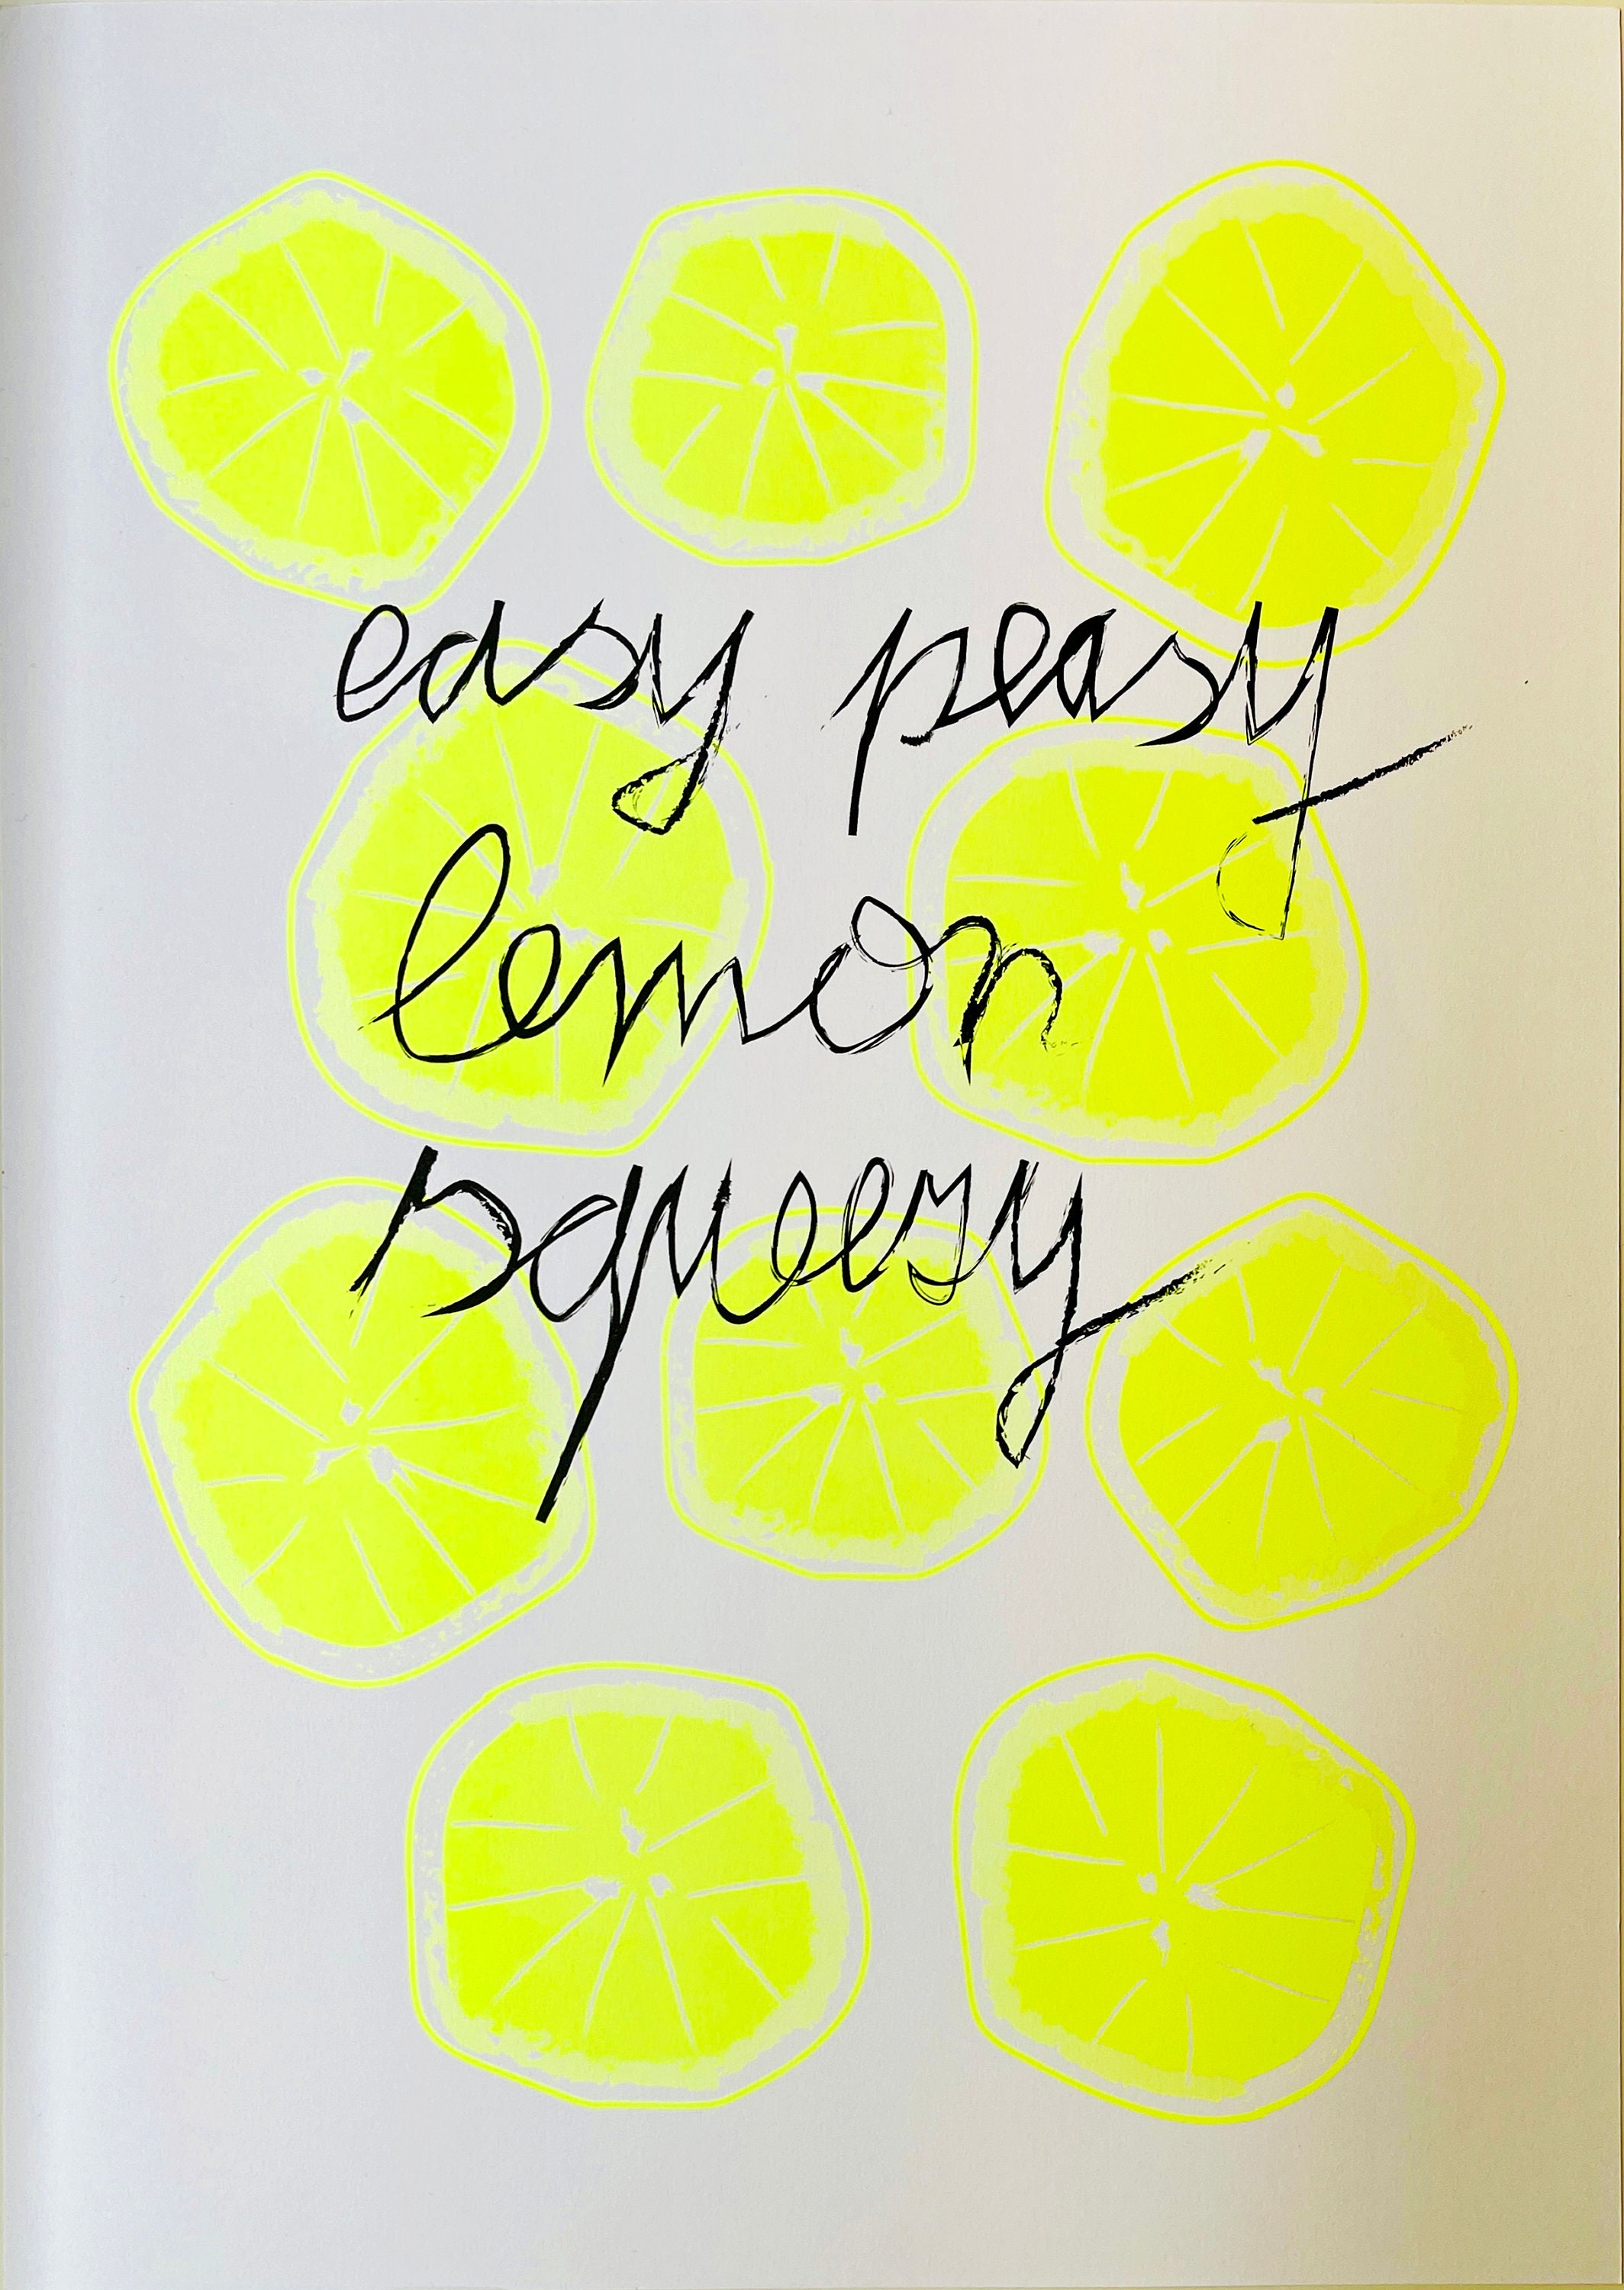 easy peasy
lemon
squeezy